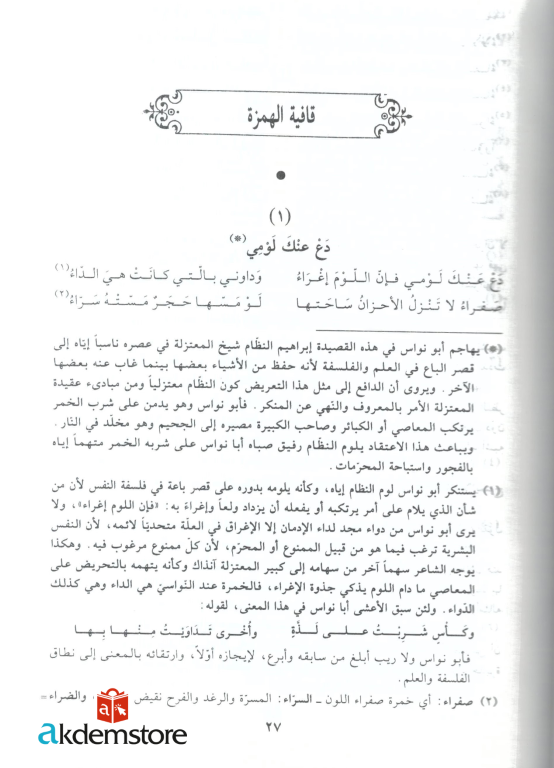 قافية الهمزة
(١)
دَعْ عنْكَ لَوْمِي(*)
دَعْ عَنْكَ لَوْمي فإنّ اللّوْمَ إغْرَاءُ وَداوني بالّتي كانَتْ هيَ الدّاءُ(١)
صَفراءُ لا تَنْزلُ الأحزانُ سَاحَتها لَوْ مَسّها حَجَرٌ مَسّتْهُ سَرّاءُ(٢)
(*) يهاجم أبو نواس في هذه القصيدة إبراهيم النظّام شيخ المعتزلة في عصره ناسباً إيّاه إلى
قصر الباع في العلم والفلسفة لأنه حفظ من الأشياء بعضها بينما غاب عنه بعضها
الآخر. ويروى أن الدافع إلى مثل هذا التعريض كون النظّام معتزلياً ومن مبادىء عقيدة
المعتزلة الأمر بالمعروف والنّهي عن المنكر. فأبو نواس وهو يدمن على شرب الخمر
يرتكب المعاصي أو الكبائر وصاحب الكبيرة مصيره إلى الجحيم وهو مخلّد في النّار.
وبباعث هذا الاعتقاد يلوم النظّام رفيق صباه أبا نواس على شربه الخمر متهماً إياه
بالفجور واستباحة المحرّمات.
(١) يستنكر أبو نواس لوم النظام إياه، وكأنه يلومه بدوره على قصر باعة في فلسفة النفس لأن من
شأن الذي يلام على أمر يرتكبه أو يفعله أن يزداد ولعاً وإغراءً به: «فإن اللوم إغراء»، ولا
يرى أبو نواس من دواء مجد لداء الإدمان إلا الإغراق في العلّة متحديّاً لائمه، لأن النفس
البشرية ترغب فيما هو من قبيل الممنوع أو المحرّم، لأن كلّ ممنوع مرغوب فيه. وهكذا
يوجه الشاعر سهماً آخر من سهامه إلى كبير المعتزلة آنذاك وكأنه يتهمه بالتحريض على
المعاصي ما دام اللوم يذكي جذوة الإغراء، فالخمرة عند النّواسيّ هي الداء وهي كذلك
الدّواء. ولئن سبق الأعشى أبا نواس في هذا المعنى، لقوله:
وكـأسٍ شَرِبْتُ علـى لَـذّةٍ وأُخرى تَداوَيْتُ مِنْها بِـها
فأبو نواس ولا ريب أبلغ من سابقه وأبرع، لإيجازه أوّلاً، وارتقائه بالمعنى إلى نطاق
الفلسفة والعلم.
(٢) صفراء: أي خمرة صفراء اللون ـ السرّاء: المسرّة والرغد والفرح نقيض والضراء=
٢٧
akdemstore